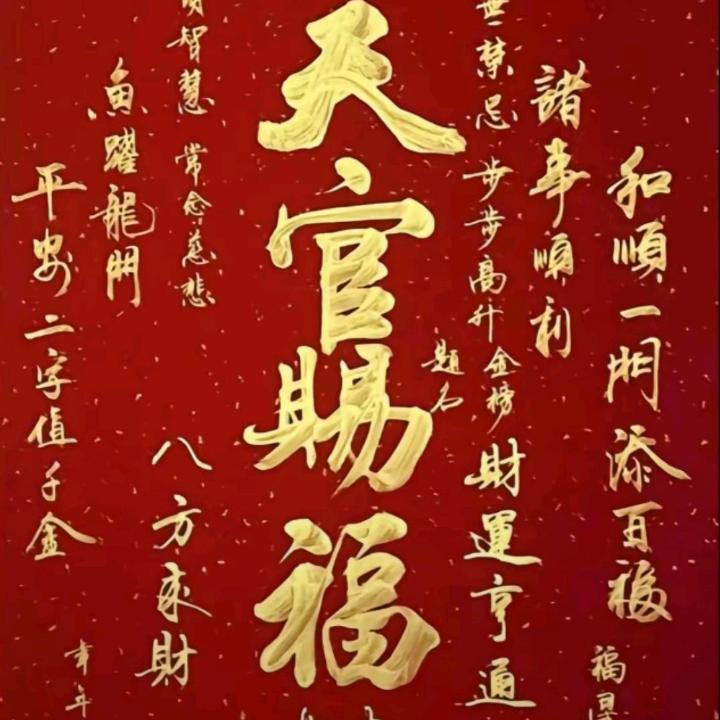 和順一門添百福
諸事順利
無禁忌
步步高升
金榜
題名
財運亨通
天官賜福
智慧 常念慈悲
八方來財
魚躍龍門
平安二字值千金